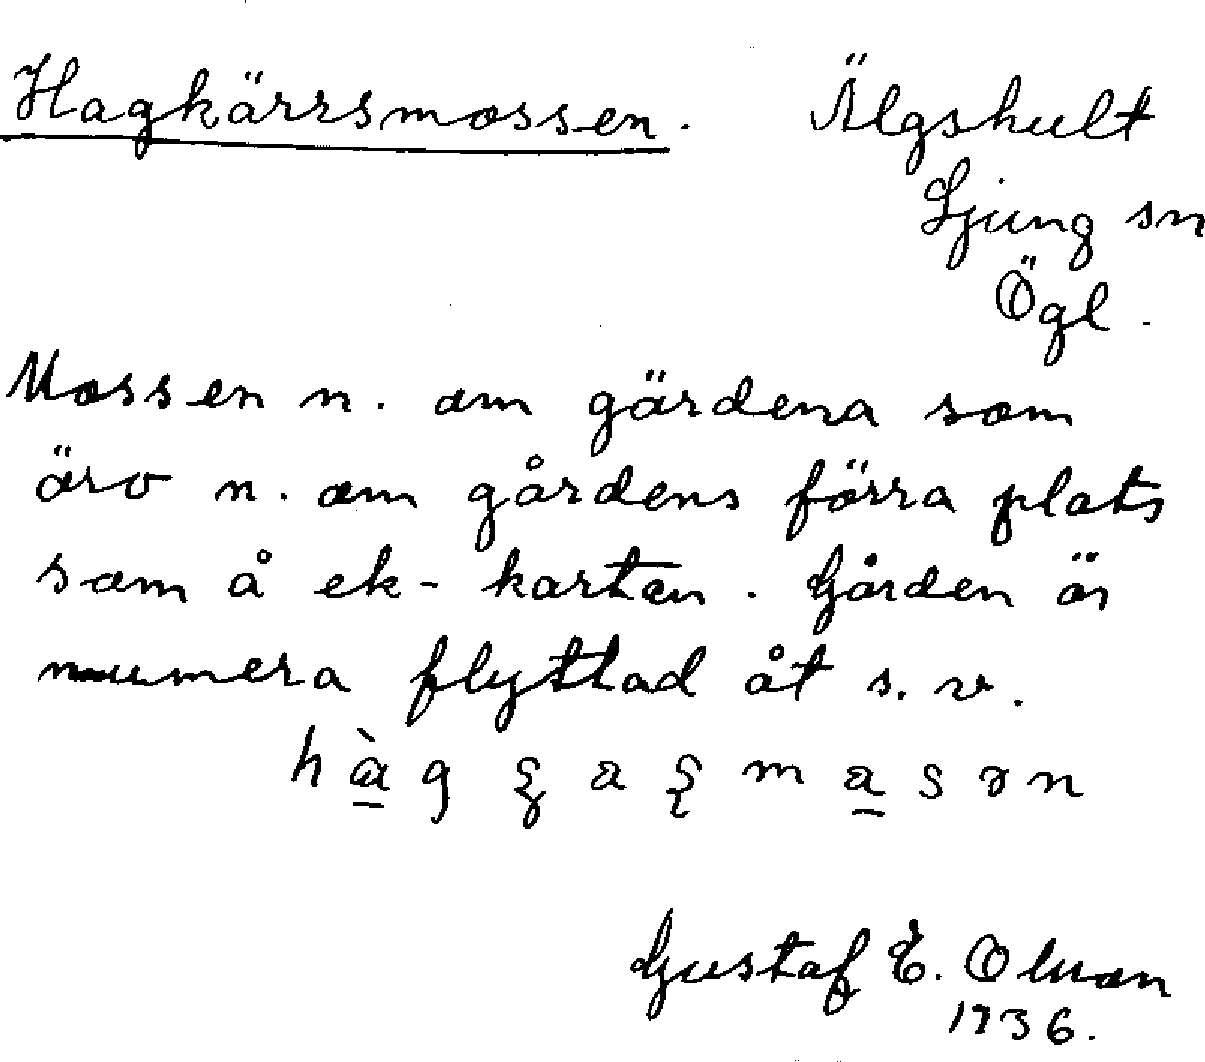 Hagkärrsmossen. Älgshult
Ljung sn
Ögl.
Mossen n. om gärdena som
äro n. om gårdens förra plats
som å ek-kartan. Gården är
numera flyttad åt s. v.
Gustaf E.
1936.